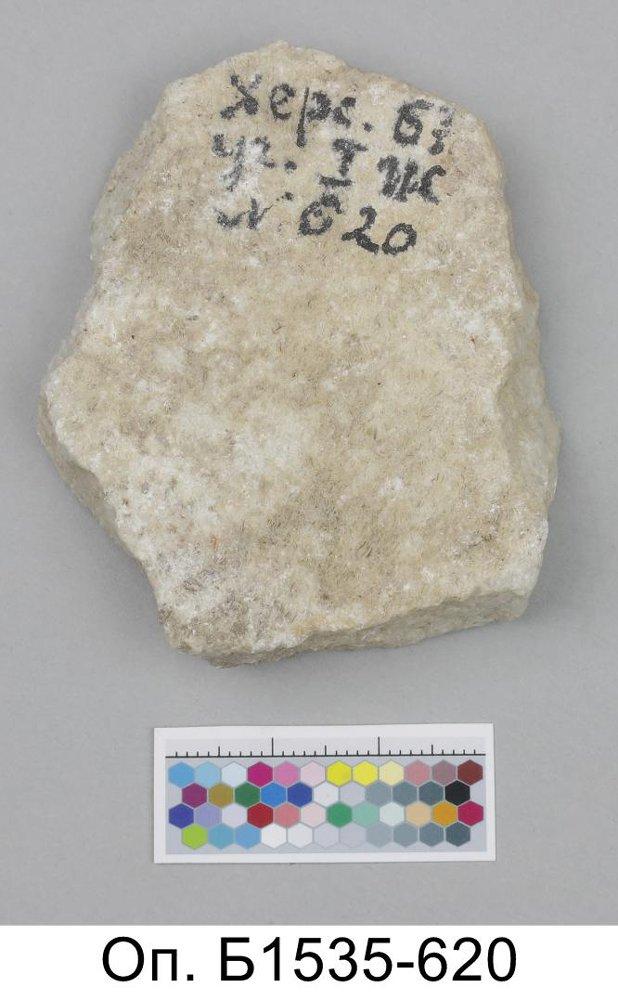 Херс. Б3
уг. I
№ 620
Оп. Б1535-620